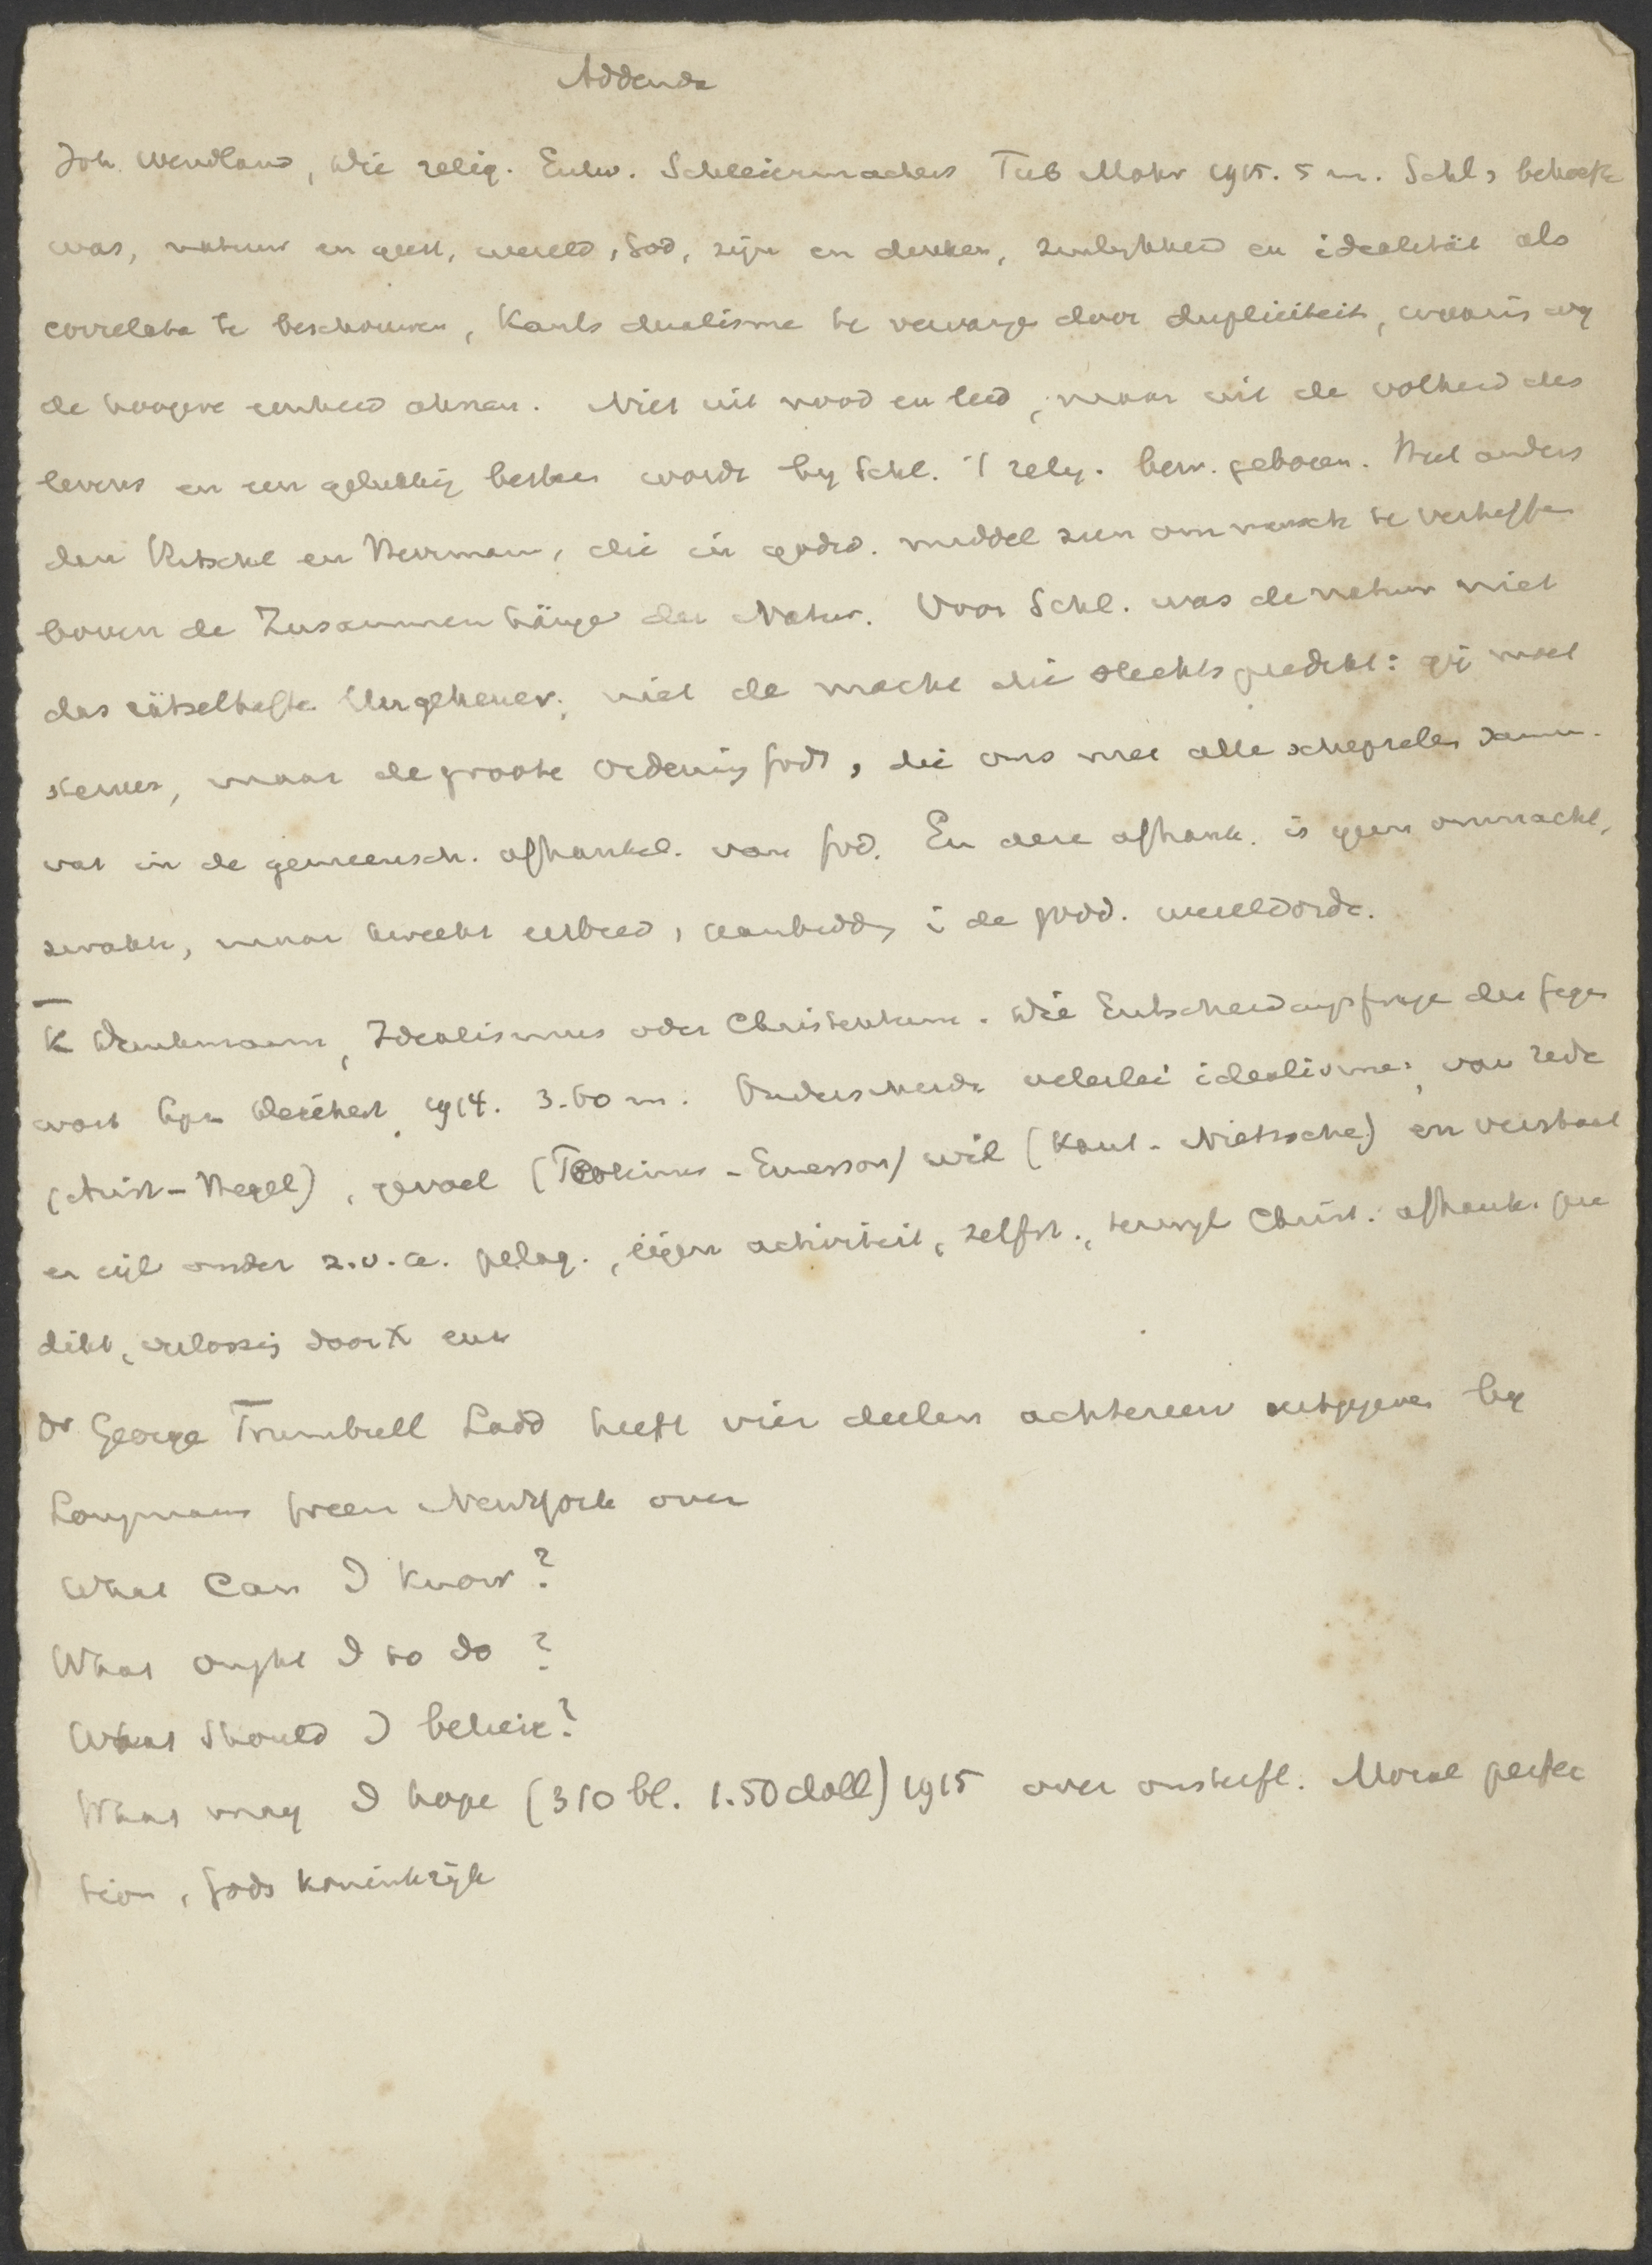 Addenda
Joh. Wendland, Die relig. Entw. Schleiermachers Tub Mohr 1915. 5 m. Schl,s behoefte
was, natuur en geest, wereld, God, zijn en denken, zinlykheid en idealität als
correlata te beschouwen, Kants dualisme te vervange door dupliciteit, waarin wy
de hoogere eenheid ahnen. Niet uit nood en leed, maar uit de volheid des
levens en een gelukkig besten wordt by Schl. 't relig. bew. geboren. Heel anders
dan Ritschl en Herrman, die in godsd. middel zien om mensch te verheffen
boven de Zusammenhänge der Natur. Voor Schl. was de natuur niet
das rätselhafte Ungeheuer, niet de macht die slechts predikt: gij moet
sterven, maar de groote ordening Gods, die ons met alle schepselen samen-
vat in de gemeensch. afhankel. van God. En deze afhank. is geen onmacht,
zwakte, maar kweekt eerbied, aanbidd, i de godd. wereldorde.
K Dunkmann, Idealismus oder Christentum. Die Entscheidungsfrage der Gegen
wart Lpz Deichert 1914. 3.60 m. Onderscheidt velerlei idealisme, van rede
(Arist-Hegel), gevoel (Plotinus-Emerson) wil (Kant-Nietzsche) en verstaat
er eigl onder z.v.a. pelag., eigen activiteit, zelfst., terwyl Christ. afhank. pre
dikt, verlossing door X enz
Dr George Trumbull Ladd heeft vier deelen achtereen uitgegeven by
Longmans Green NewYork over
What Can I know?
What ought I to do?
What Should I believe?
What may I hope (310 bl. 1.50 doll) 1915 over onsterfl. Moral perfec
tion, Gods koninkrijk